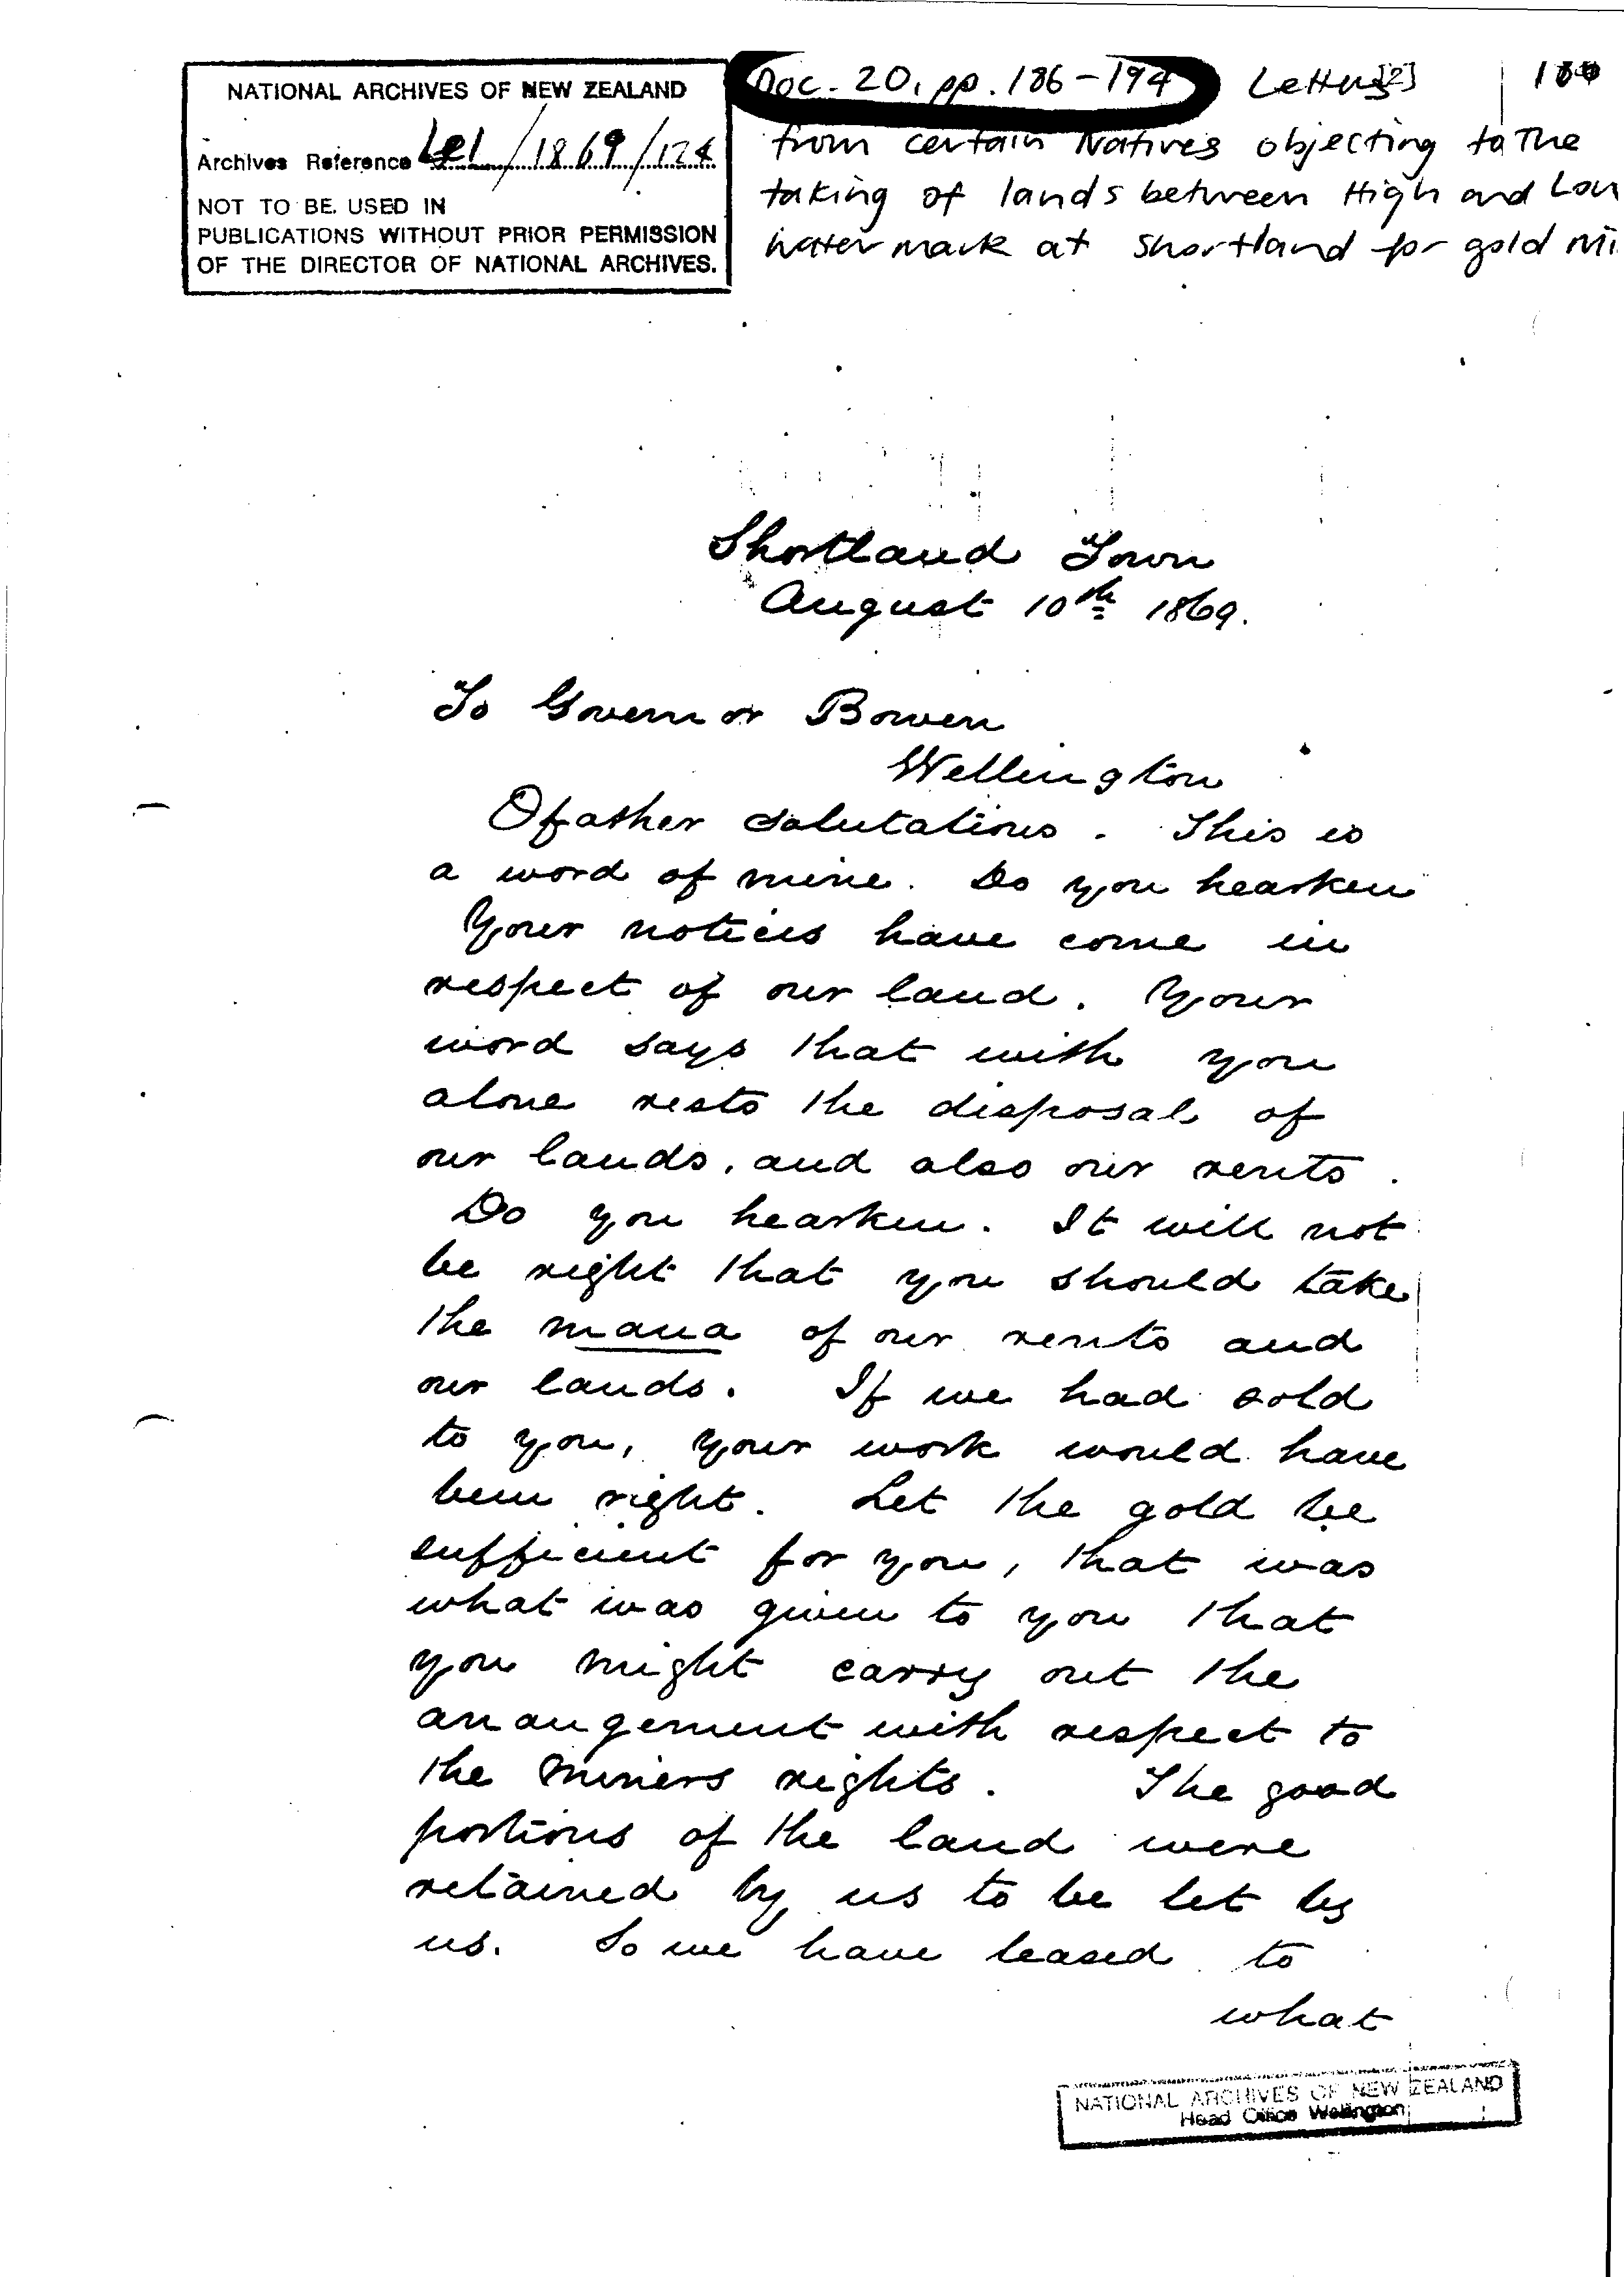 NATIONAL ARCHIVES OF NEW ZEALAND
Archives Reference Le1/1869/124
NOT TO BE USED IN
PUBLICATIONS WITHOUT PRIOR PERMISSION
OF THE DIRECTOR OF NATIONAL ARCHIVES.
Doc. 20, pp. 186-194 Letters [2]
from certain Natives objecting to The
taking of lands between High and Low
water mark at Shortland for gold Mi
Shortland Town
August 10th 1869.
To Governor Bowen
Wellington
O father salutations. This is
a word of mine. Do you hearken
Your notices have come in
respect of our land. Your
word says that with you
alone rests the disposal of
our lands, and also our rents.
Do you hearken. It will not
be right that you should take
the mana of our rents and
our lands. If we had sold
to you, your work would have
been right. Let the gold be
sufficient for you, that was
what was given to you that
you might carry out the
arrangement with respect to
the miners rights. The good
portions of the land were
retained by us to be let by
us. So we have leased to
what
NATIONAL ARCHIVES OF NEW ZEALAND
Head Office Wellington